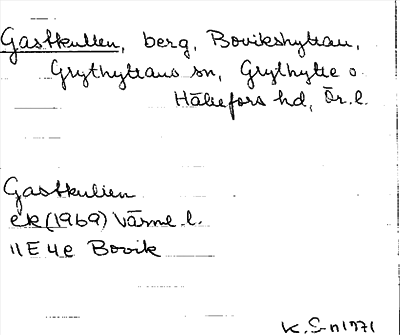 Gastkullen, berg, Bovikshyttan,
Grythyttans sn, Grythytte o.
Hällefors hd, Ör. l.
Gastkullen
ek (1969) Värml. l.
11E 4e Bovik
K. S-n 1971